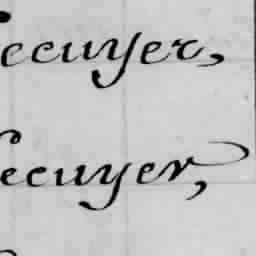 ecuyer,
ecuyer,